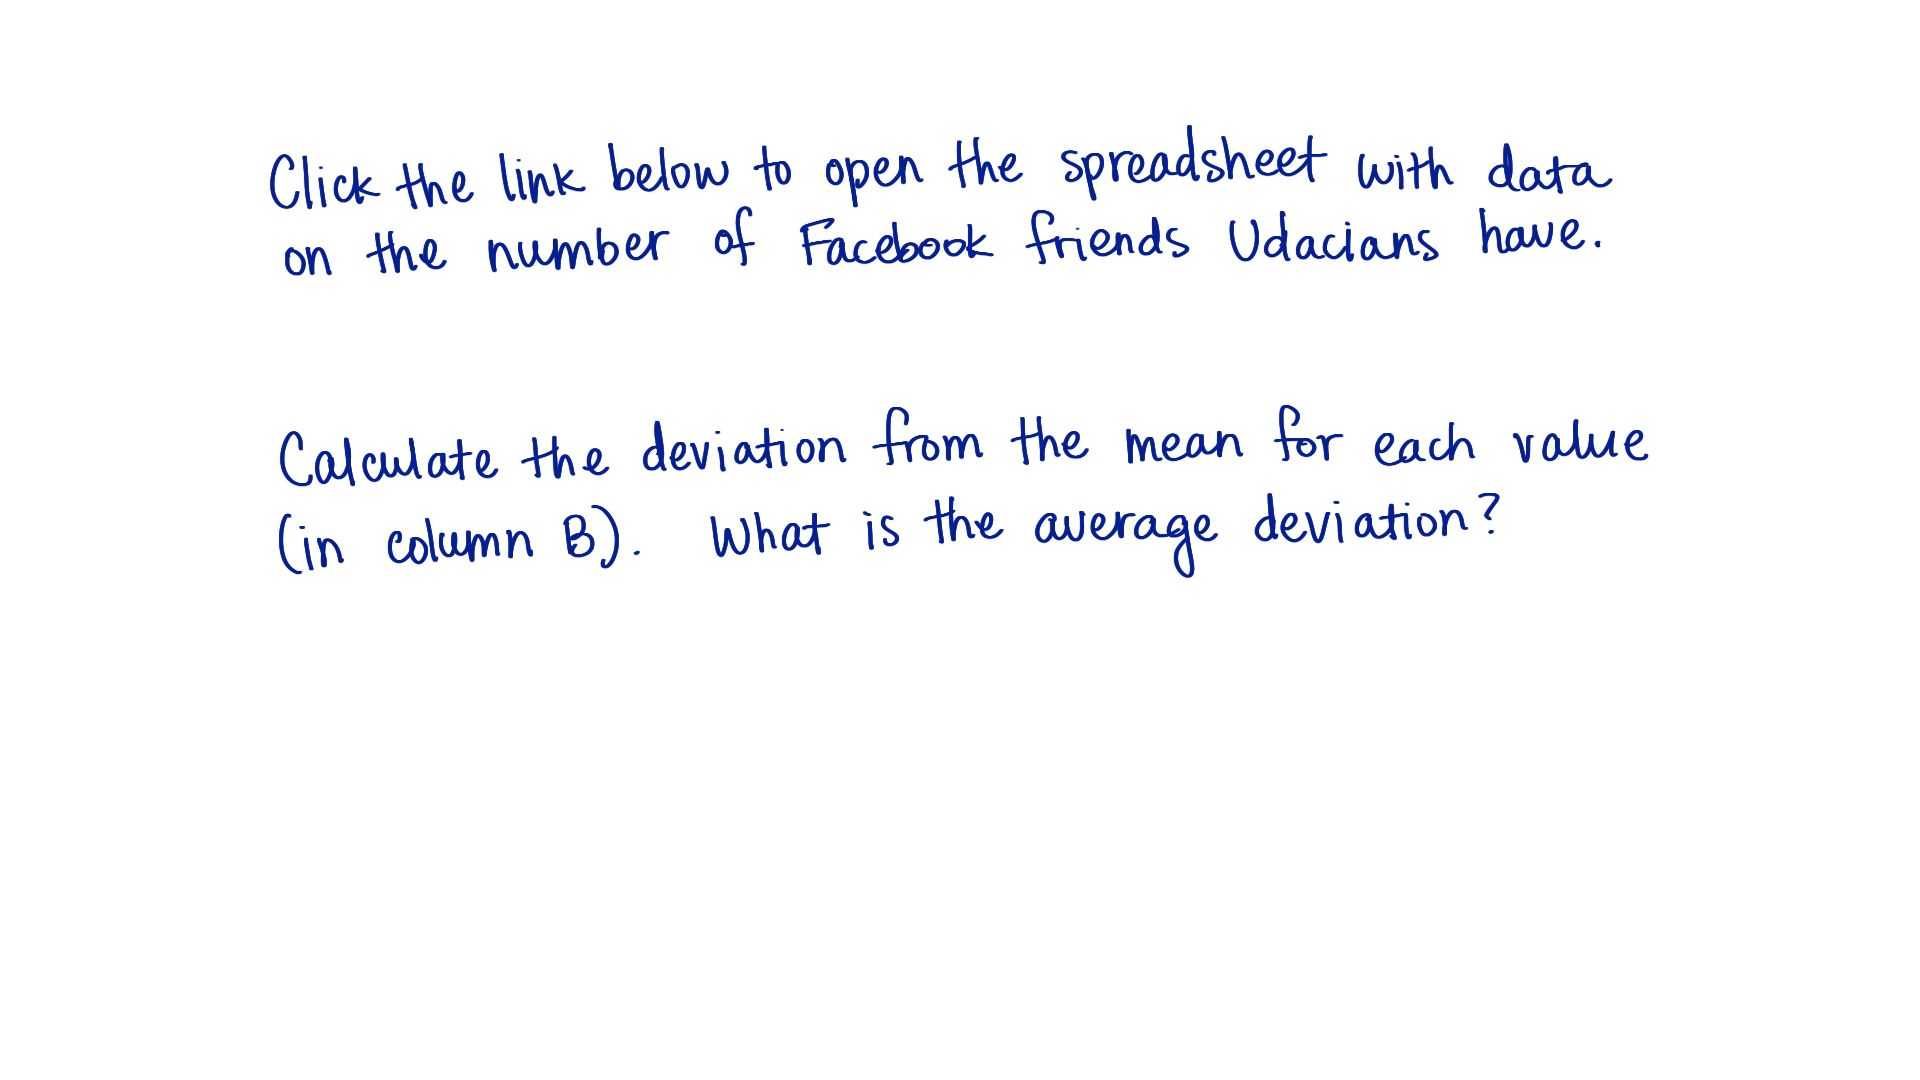 Click the link below to open the spreadsheet with data
on the number of Facebook friends Udacians have.
Calculate the deviation from the mean for each value
(in column B). What is the average deviation?